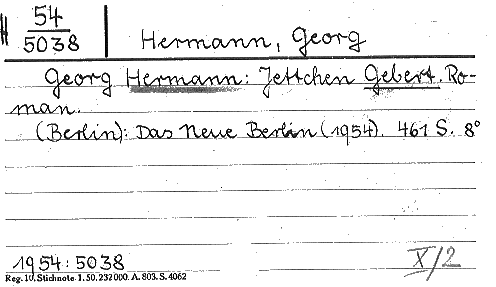 54
5038
Hermann, Georg
Georg Hermann: Jettchen Gebert. Ro-
man.
(Berlin): Das Neue Berlin (1954). 461 S. 8°
1954: 5038
X/2
Reg. 10. Stichnote 1. 50. 232000. A. 803. S. 4062